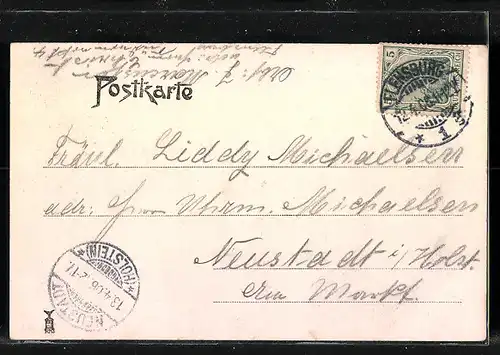 Postkarte
Abs: J.
FLENSBURG
5
1
Fräul. Liddy Michaelsen
adr. Herrn Uhrm. Michaelsen
Neustadt i/Holst.
Am Markt.
NEUSTADT
(HOLSTEIN)
13.4.06.